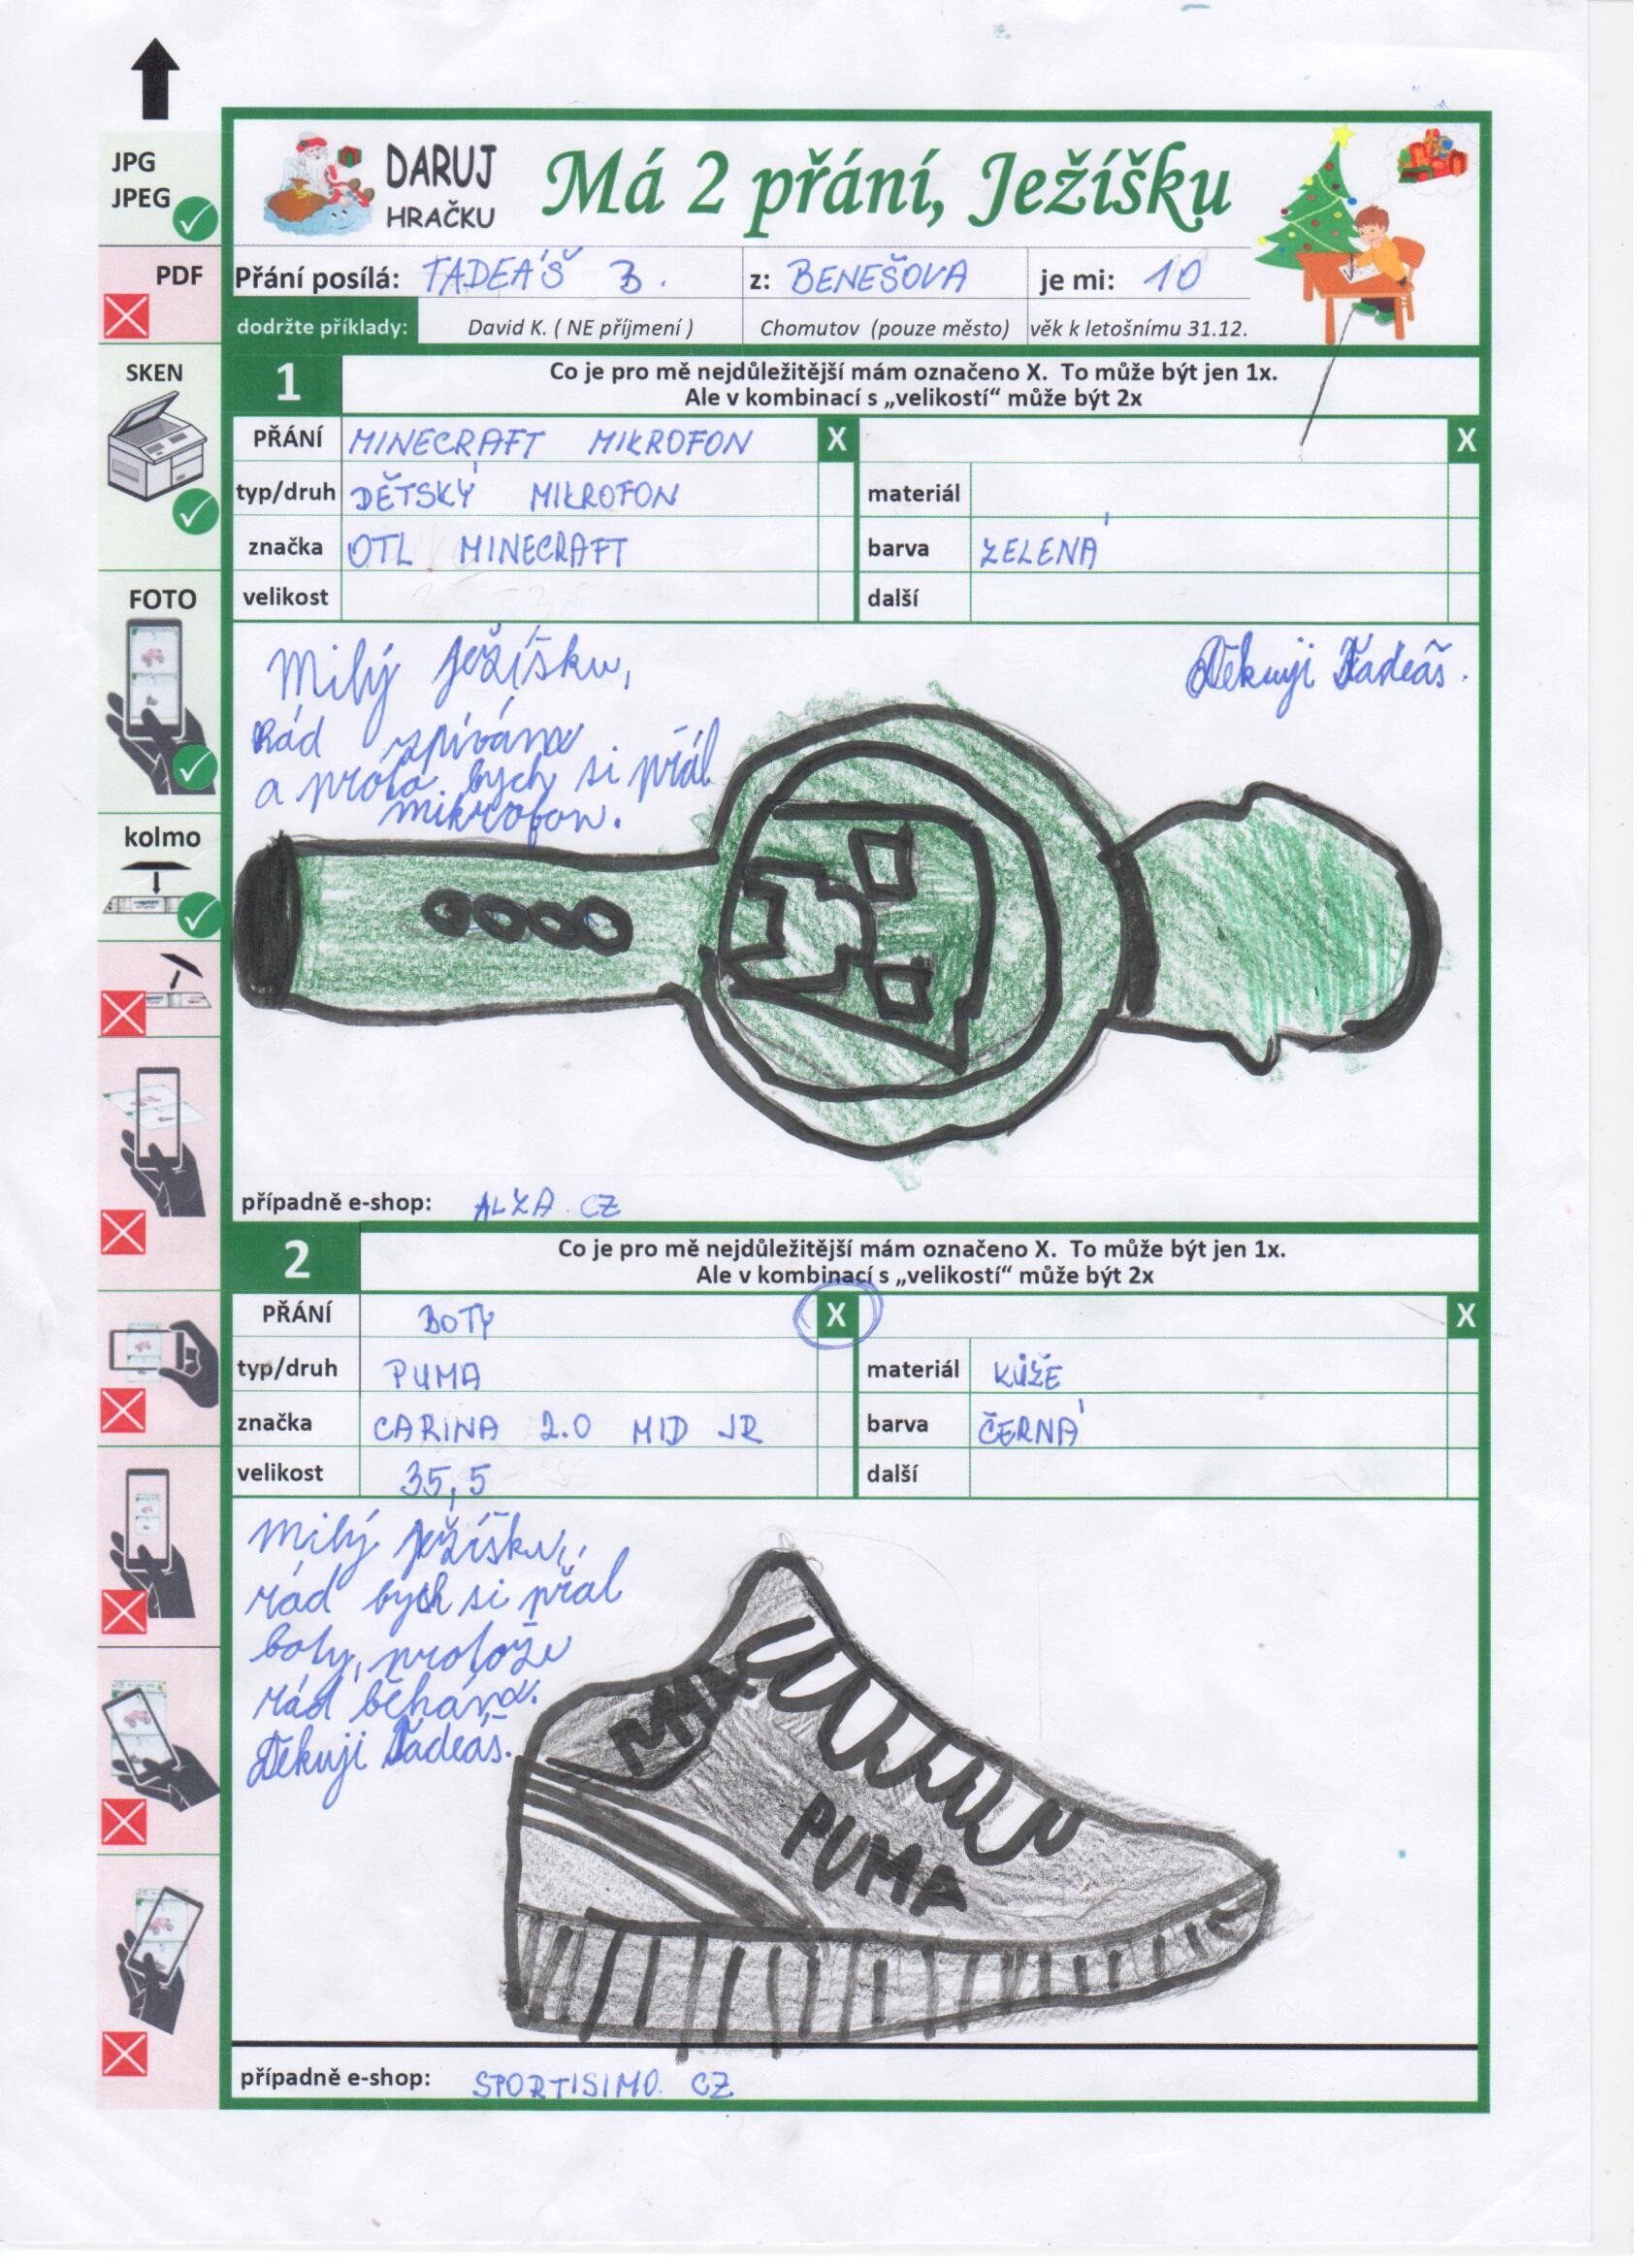 JPG
JPEG
PDF
SKEN
FOTO
kolmo
DARUJ
HRAČKU
Má 2 přání, Ježíšku
Přání posílá: TADEÁŠ B. z: BENEŠOVA je mi: 10
dodržte příklady: David K. ( NE příjmení ) Chomutov (pouze město) věk k letošnímu 31.12.
1 Co je pro mě nejdůležitější mám označeno X. To může být jen 1x.
Ale v kombinací s „velikostí“ může být 2x
PŘÁNÍ MINECRAFT MIKROFON X X
typ/druh DĚTSKÝ MIKROFON materiál
značka OTL MINECRAFT barva ZELENÁ
velikost další
Milý Ježíšku,
Rád zpívám
a proto bych si přál
mikrofon.
Děkuji Tadeáš.
případně e-shop: ALZA.CZ
2 Co je pro mě nejdůležitější mám označeno X. To může být jen 1x.
Ale v kombinací s „velikostí“ může být 2x
PŘÁNÍ BOTY X X
typ/druh PUMA materiál KŮŽE
značka CARINA 2.0 MID JR barva ČERNÁ
velikost 35,5 další
Milý Ježíšku,
rád bych si přál
boty, protože
rád běhám.
Děkuji Tadeáš.
PUMA
případně e-shop: SPORTISIMO.CZ